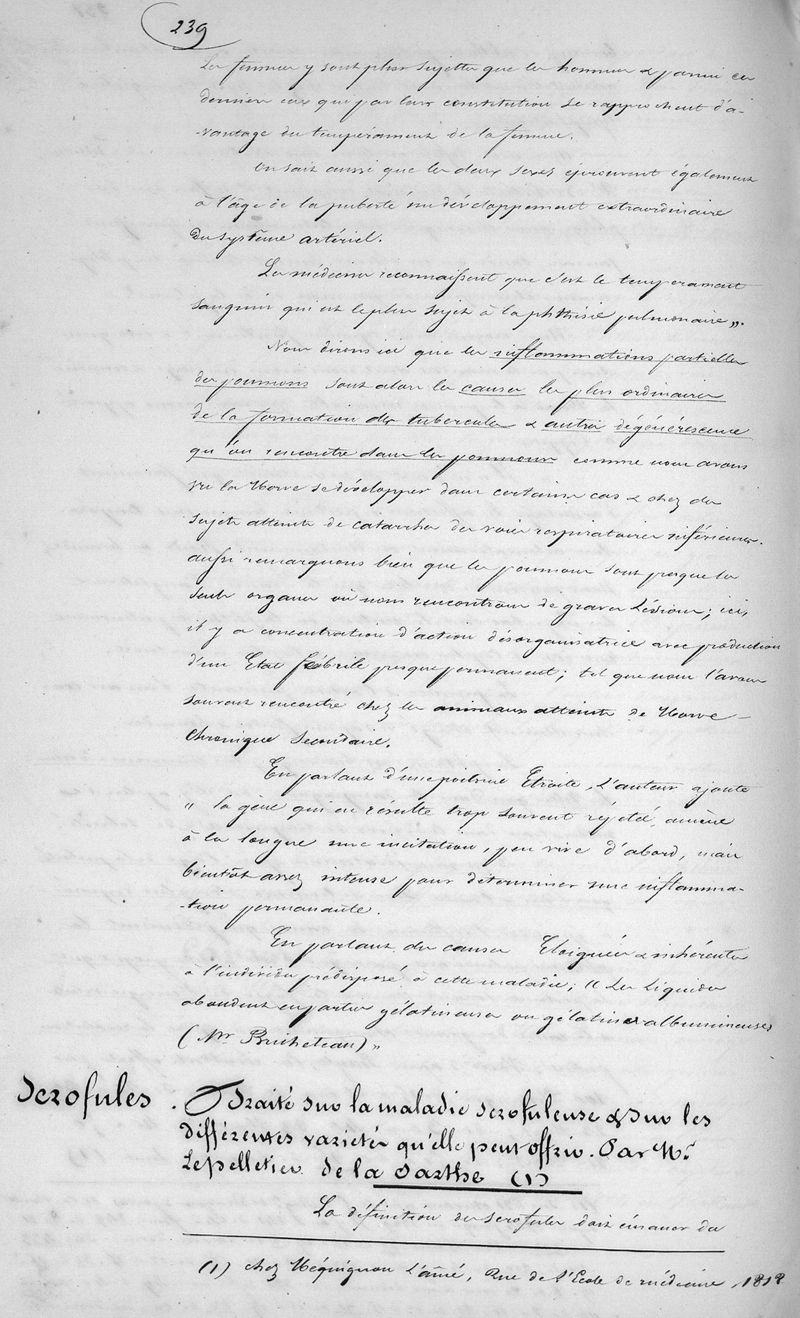 239
Les femmes y sont plus sujettes que les hommes & parmi ces
derniers ceux que par leur constitution se rapprochent d'a-
-vantage du tempérament de la femme.
On sait aussi que les deux sexes éprouvent également
à l'âge de la puberté un développement extraordinaire
du système artériel.
Les médecins reconnaissent que c'est le temperament
sanguin qui est le plus sujet à la phthisie pulmonaire ».
Nous dirons ici que les inflammations partielles
des poumons sont alors les causes les plus ordinaires
de la formation des tubercules & autres dégénérescences
qu'on rencontre dans les poumons comme nous avons
vu la Morve se développer dans certains cas & chez des
sujets atteints de catarrhes des voies respiratoires inférieures.
aussi remarquons bien que les poumons sont presque les
seuls organes où nous rencontrons de graves Lésions; ici,
il y a concentration d'action désorganisatrice avec production
d'un Etat fébrile presque permanent; tel que nous l'avons
souvent rencontré chez les animaux atteints de Morve -
Chronique Secondaire.
En parlant d'une poitrine Etroite, L'auteur ajoute
« la gêne qui en résulte trop souvent répétée, amène
à la longue une incitation, peu vive d'abord, mais
bientôt assez intense pour determiner une inflamma-
-tion permanante.
En parlant des causes Eloignées & inhérentes
à l'individu prédisposé à cette maladie; « Les Liquides
abondent en parties gélatineuses ou gélatines albumineuses
(Mr Bricheteau) »
Scrofules. Traité sur la maladie scrofuleuse & sur les
différentes varietés qu'elle peut offrir. Par Mr
Lepelletier de la Sarthe (1)
La définition des scrofules doit émaner du
(1) chez Méquignon L'aîné, Rue de l'Ecole de médecine, 1818